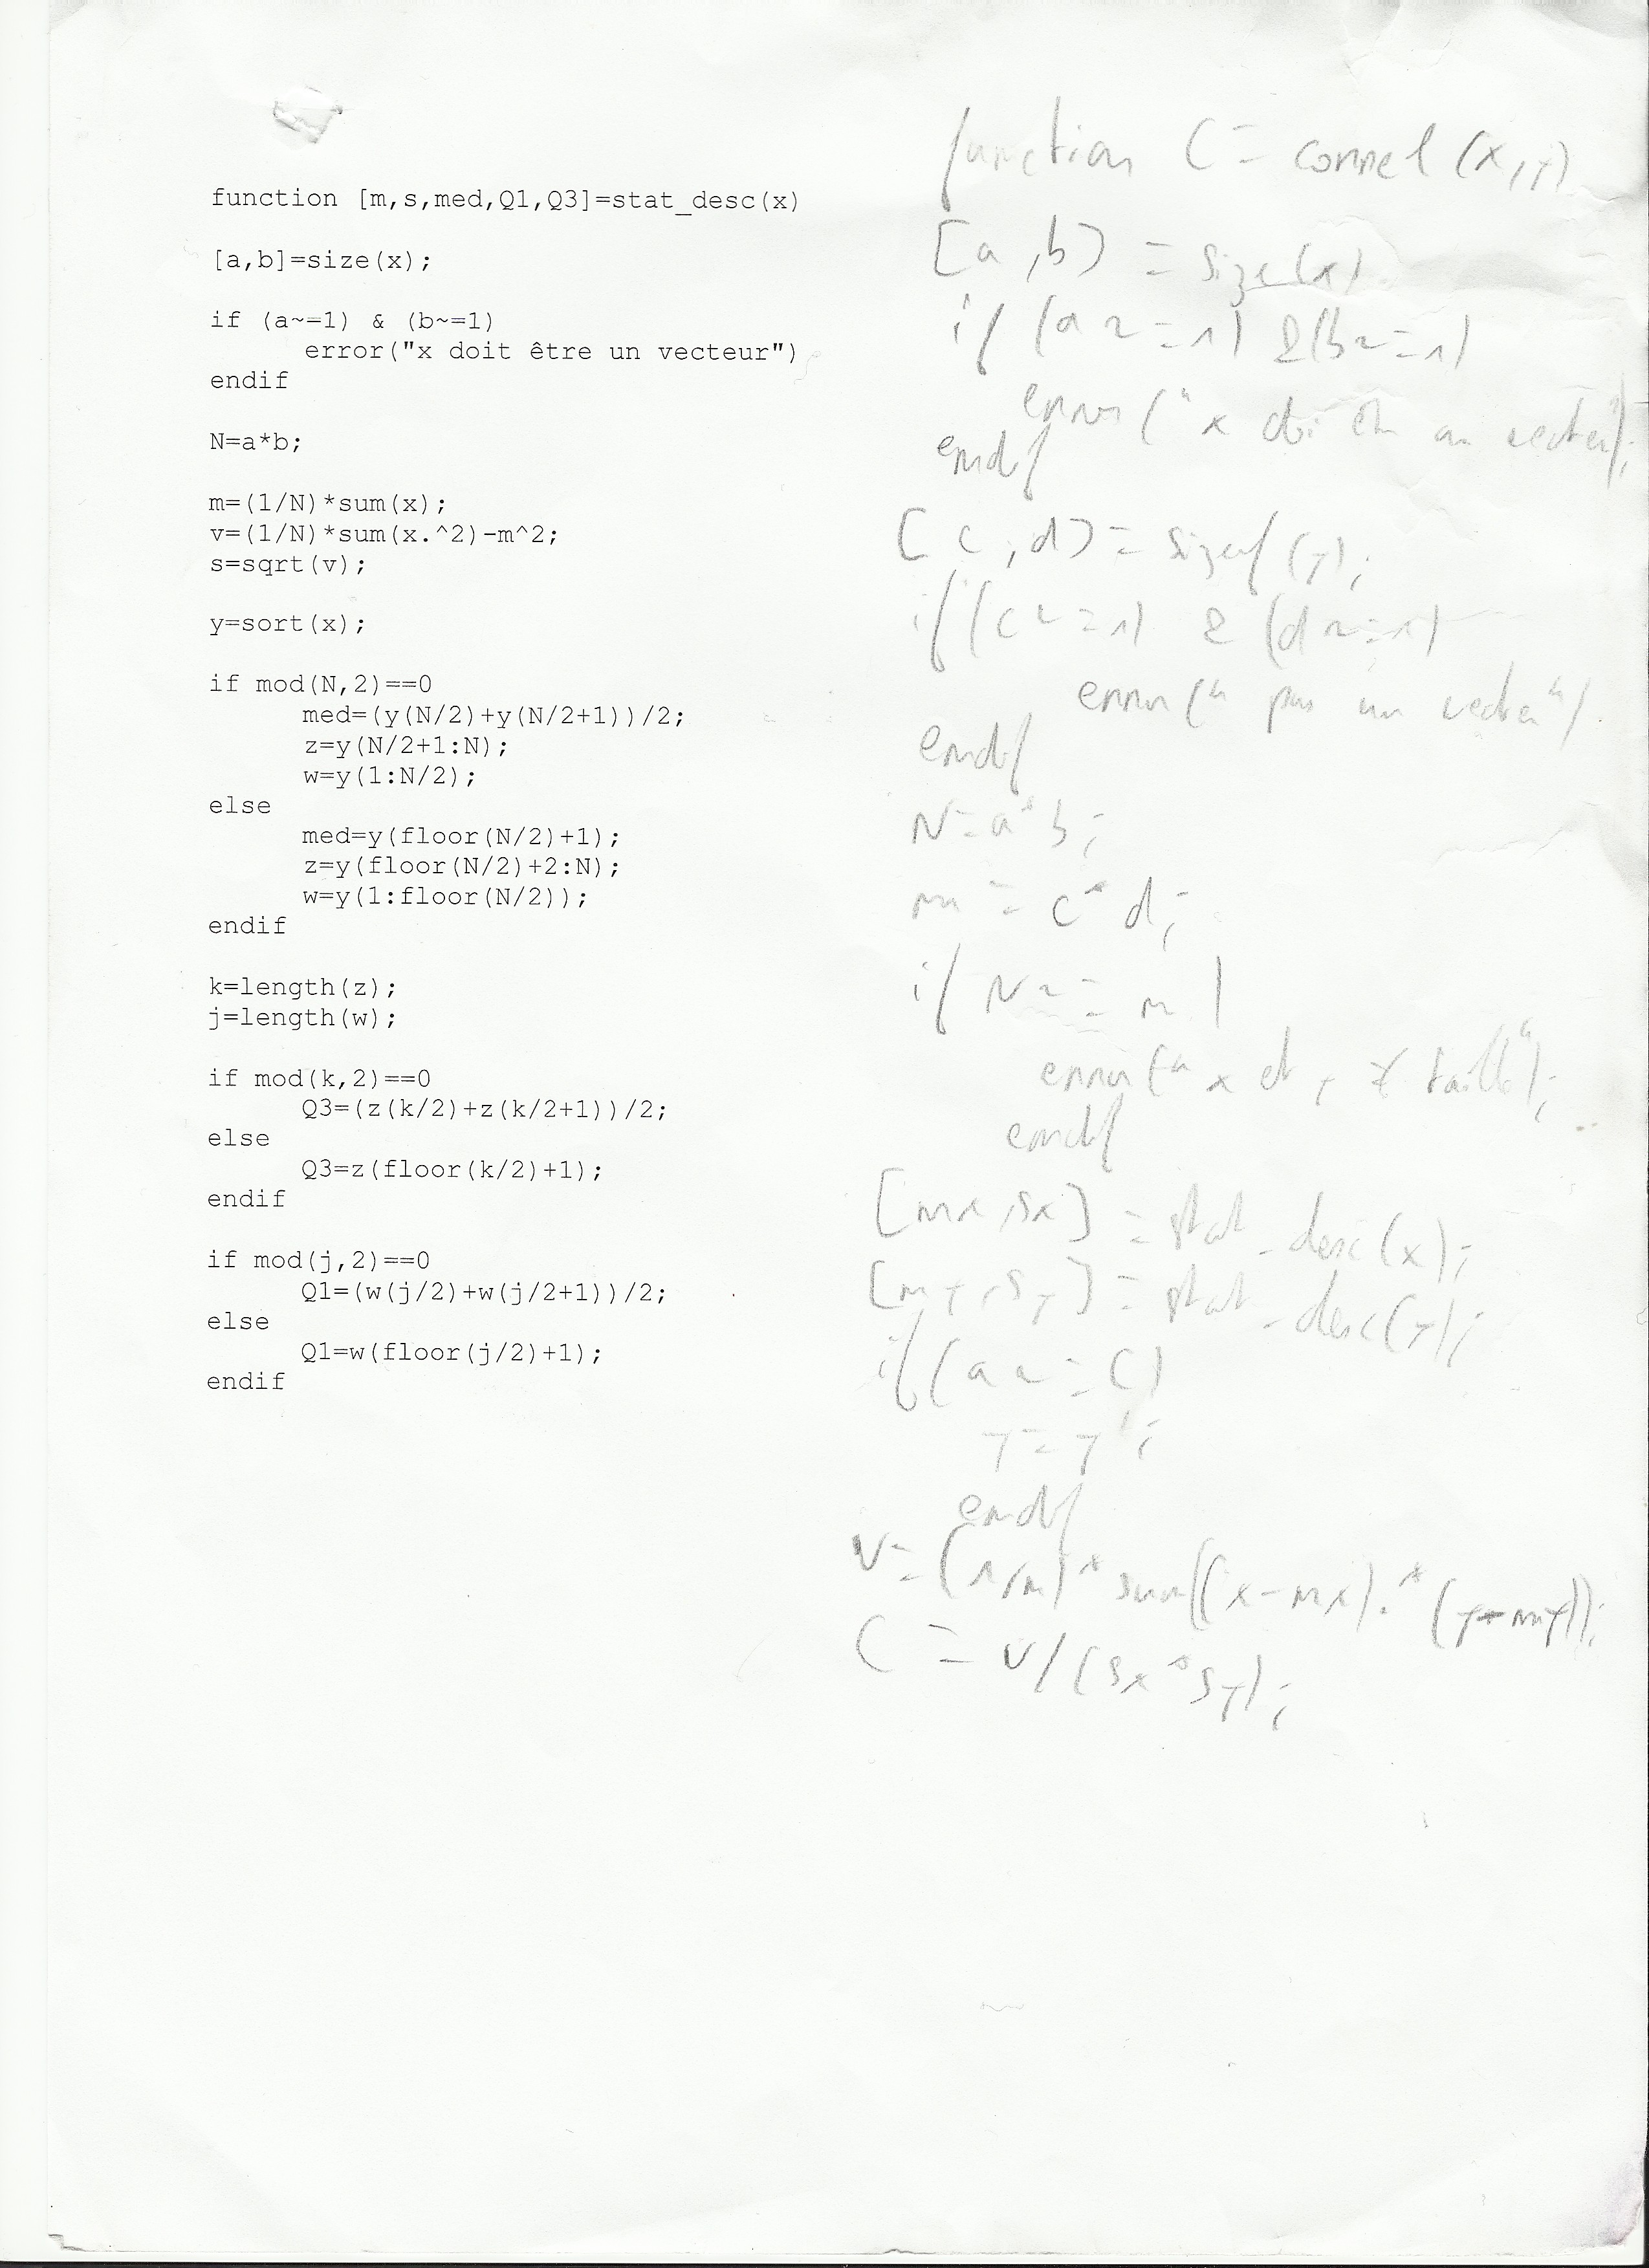 function [m,s,med,Q1,Q3]=stat_desc(x)
[a,b]=size(x);
if (a~=1) & (b~=1)
error("x doit être un vecteur")
endif
N=a*b;
m=(1/N)*sum(x);
v=(1/N)*sum(x.^2)-m^2;
s=sqrt(v);
y=sort(x);
if mod(N,2)==0
med=(y(N/2)+y(N/2+1))/2;
z=y(N/2+1:N);
w=y(1:N/2);
else
med=y(floor(N/2)+1);
z=y(floor(N/2)+2:N);
w=y(1:floor(N/2));
endif
k=length(z);
j=length(w);
if mod(k,2)==0
Q3=(z(k/2)+z(k/2+1))/2;
else
Q3=z(floor(k/2)+1);
endif
if mod(j,2)==0
Q1=(w(j/2)+w(j/2+1))/2;
else
Q1=w(floor(j/2)+1);
endif
function C = correl (x,y)
[a,b] = size(x)
if (a~=1) &(b~=1)
error("x un vecteur");
endif
[c,d] = size (y);
if (c~=1) & (d~=1)
error(" pas un vecteur")
endif
N=a*b;
m = c*d;
if N~=m
error(" x et y ≠ taille");
endif
[mx,sx] = stat_desc(x);
[my,sy] = stat_desc(y);
if (a~=c)
y=y';
endif
v=(1/m)*sum((x-mx).*(y-my));
C = v/(sx*sy);